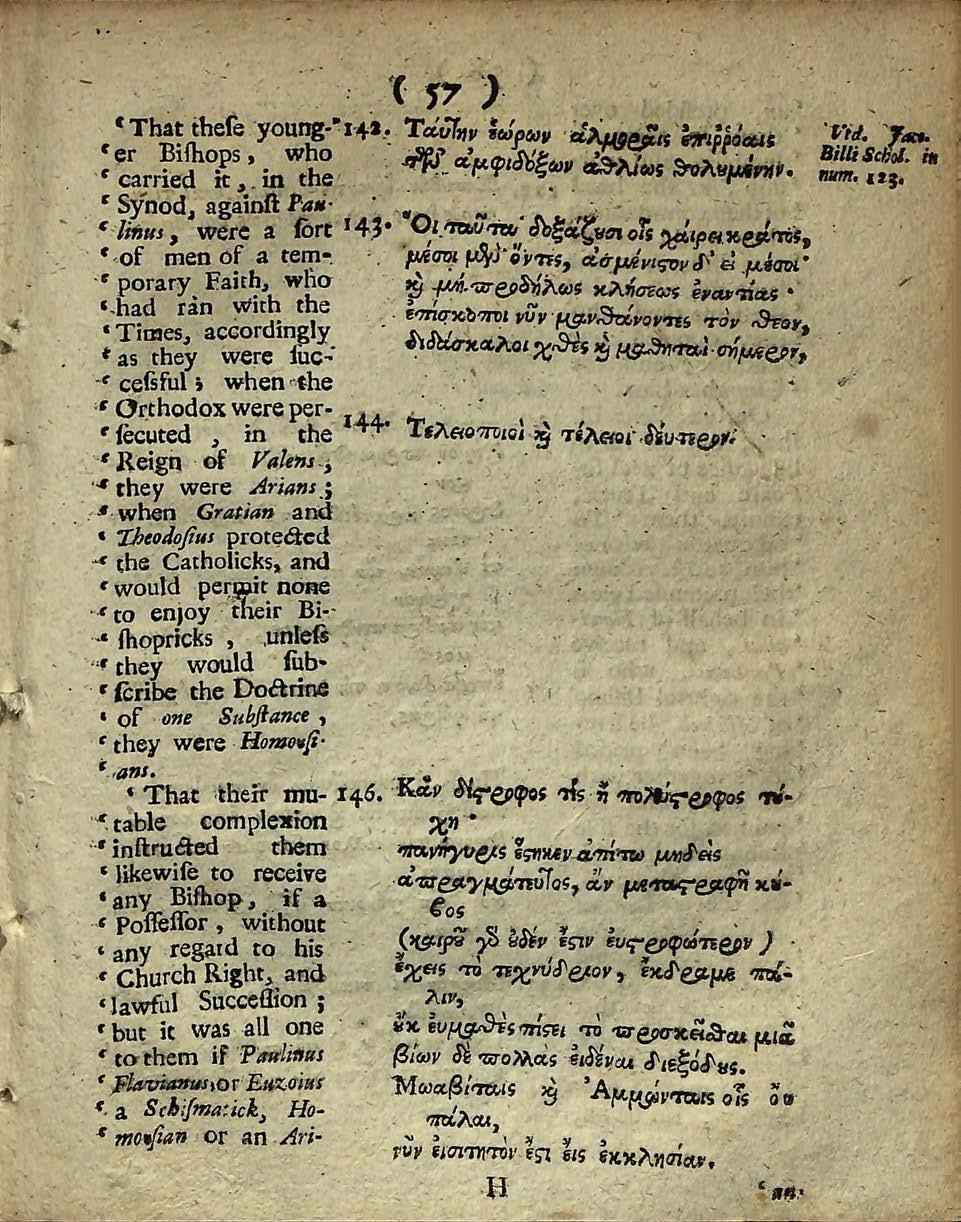 ( 57 )
‘ That theſe young-
‘ er Biſhops, who
‘ carried it, in the
‘ Synod, againſt Pau-
‘ linus, were a ſort
‘ of men of a tem-
‘ porary Faith, who
‘ had ran with the
‘ Times, accordingly
‘ as they were ſuc-
‘ ceſsful; when the
‘ Orthodox were per-
‘ ſecuted, in the
‘ Reign of Valens,
‘ they were Arians;
‘ when Gratian and
‘ Theodoſius protected
‘ the Catholicks, and
‘ would permit none
‘ to enjoy their Bi-
‘ ſhopricks, unleſs
‘ they would ſub-
‘ ſcribe the Doctrine
‘ of one Subſtance,
‘ they were Homouſi-
‘ ans.
‘ That their mu-
‘ table complexion
‘ inſtructed them
‘ likewiſe to receive
‘ any Biſhop, if a
‘ Poſſeſſor, without
‘ any regard to his
‘ Church Right, and
‘ lawful Succeſſion;
‘ but it was all one
‘ to them if Paulinus
‘ Flavianus, or Euzoius
‘ a Schiſmatick, Ho-
‘ mouſian or an Ari-
142. Ταύτην ἑώρων ἁλμυραῖς ἐπιῤῥόαις
τῶν ἀμφιδόξων ἀθλίως θολυμένην.
143. Οἱ ταῦτα δοξάζουσι οἷς χαίρει κράτος,
μέσοι μὲν ὄντες, ἀσμένιστον δ' εἰ μέσοι
καὶ μὴ προδήλως κλήσεως ἐναντίας
ἐπίσκοποι νῦν μανθάνοντες τὸν θεον,
διδάσκαλοι χθὲς καὶ μαθηταὶ σήμερον,
144. Τελειοποιοὶ καὶ τέλειοι δεύτερον.
146. Κἂν δίστροφος τὶς ἢ πολύστροφος τύ-
χη
πανήγυρις ἕστηκεν ἀπίτω μηδεὶς
ἀπραγμάτευτος, ἂν μεταστραφῇ κύ-
βος
(καιροῦ γὰρ οὐδέν ἐστιν ἐυστροφώτερον)
ἔχεις τὸ τεχνύδριον, ἔκδραμε πά-
λιν,
οὐκ ἐυμαθὲς πίστει τὸ προσκεῖσθαι μιᾷ
βίων δὲ πολλας εἰδέναι διεξόδους.
Μωαβίταις καὶ Ἀμμώνταις οἷς οὐ
πάλαι,
νῦν ἐισιτητὸν ἔστι εἰς ἐκκλησίαν.
Vid. Jac.
Billi Schol. in
num. 123.
H
‘ an.